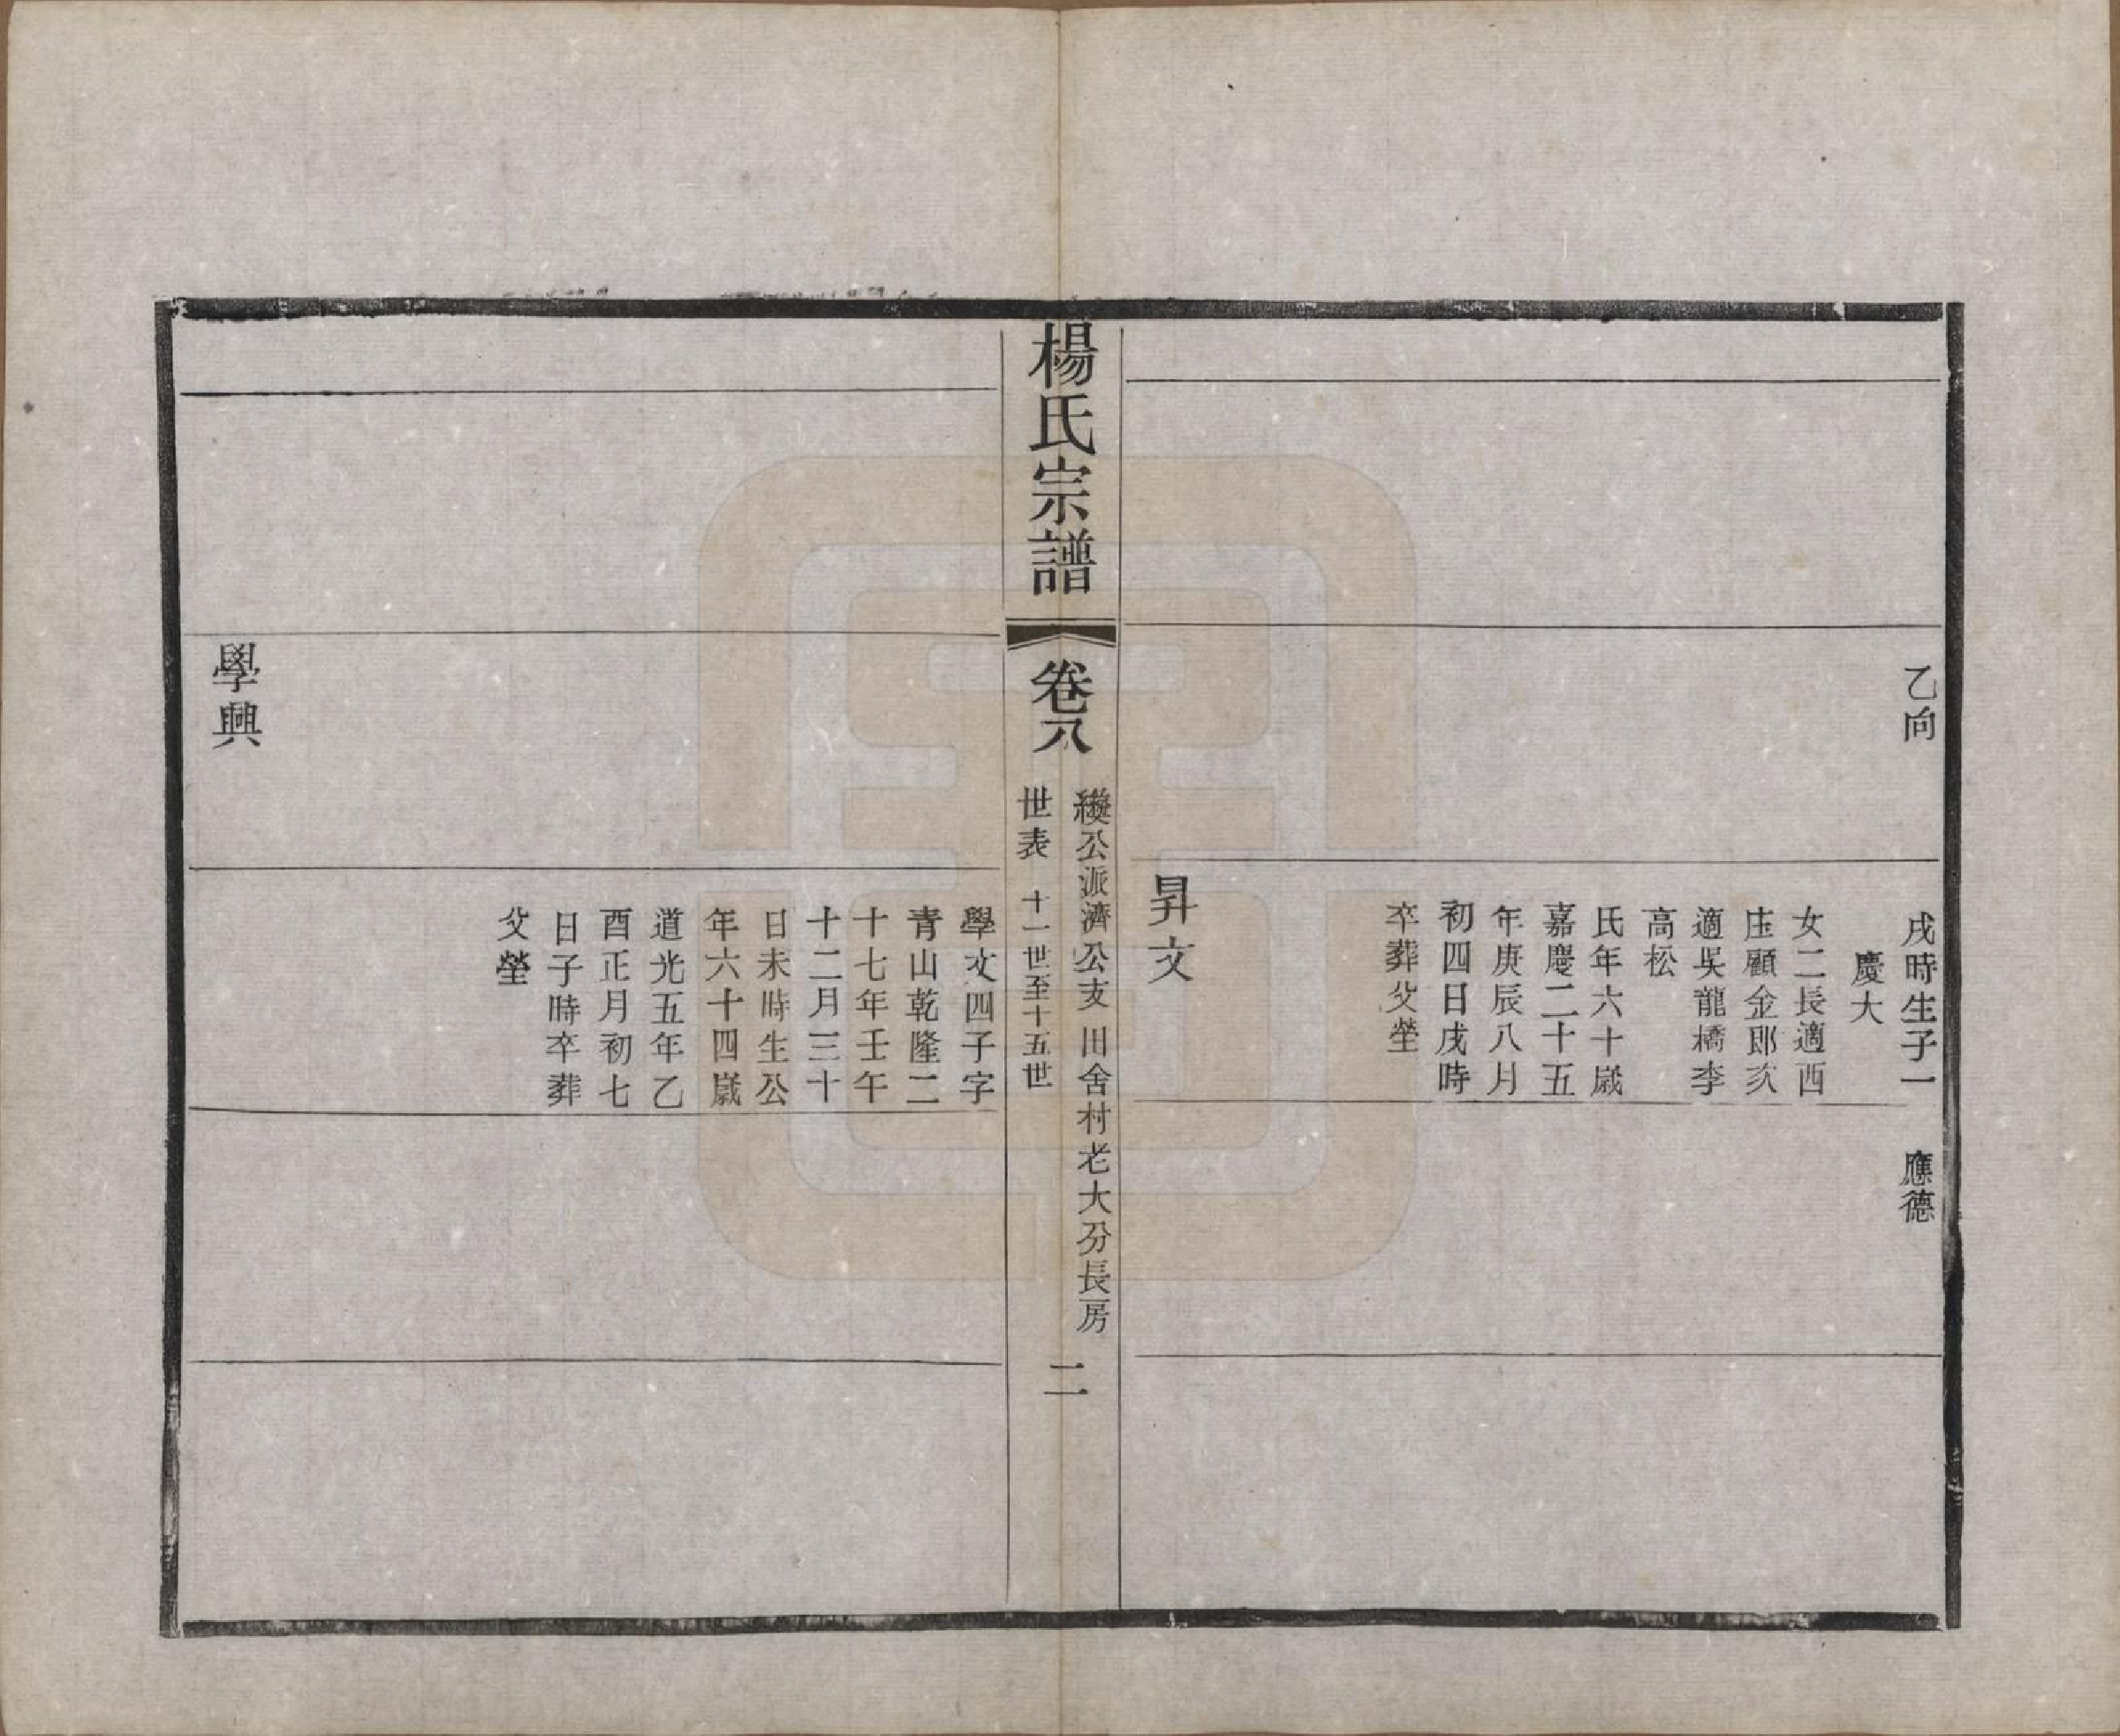 乙向
戌時生子一
慶大
女二長適西
庄顧金郎次
適吳龍橋李
高松
氏年六十歲
嘉慶二十五
年庚辰八月
初四日戌時
卒葬父塋
應德
昇文
楊氏宗譜
卷八
公派濟公支 田舍村老大分長房
世表 十一世至十五世
二
學文四子字
青山乾隆二
十七年壬午
十二月三十
日未時生公
年六十四歲
道光五年乙
酉正月初七
日子時卒葬
父塋
學興